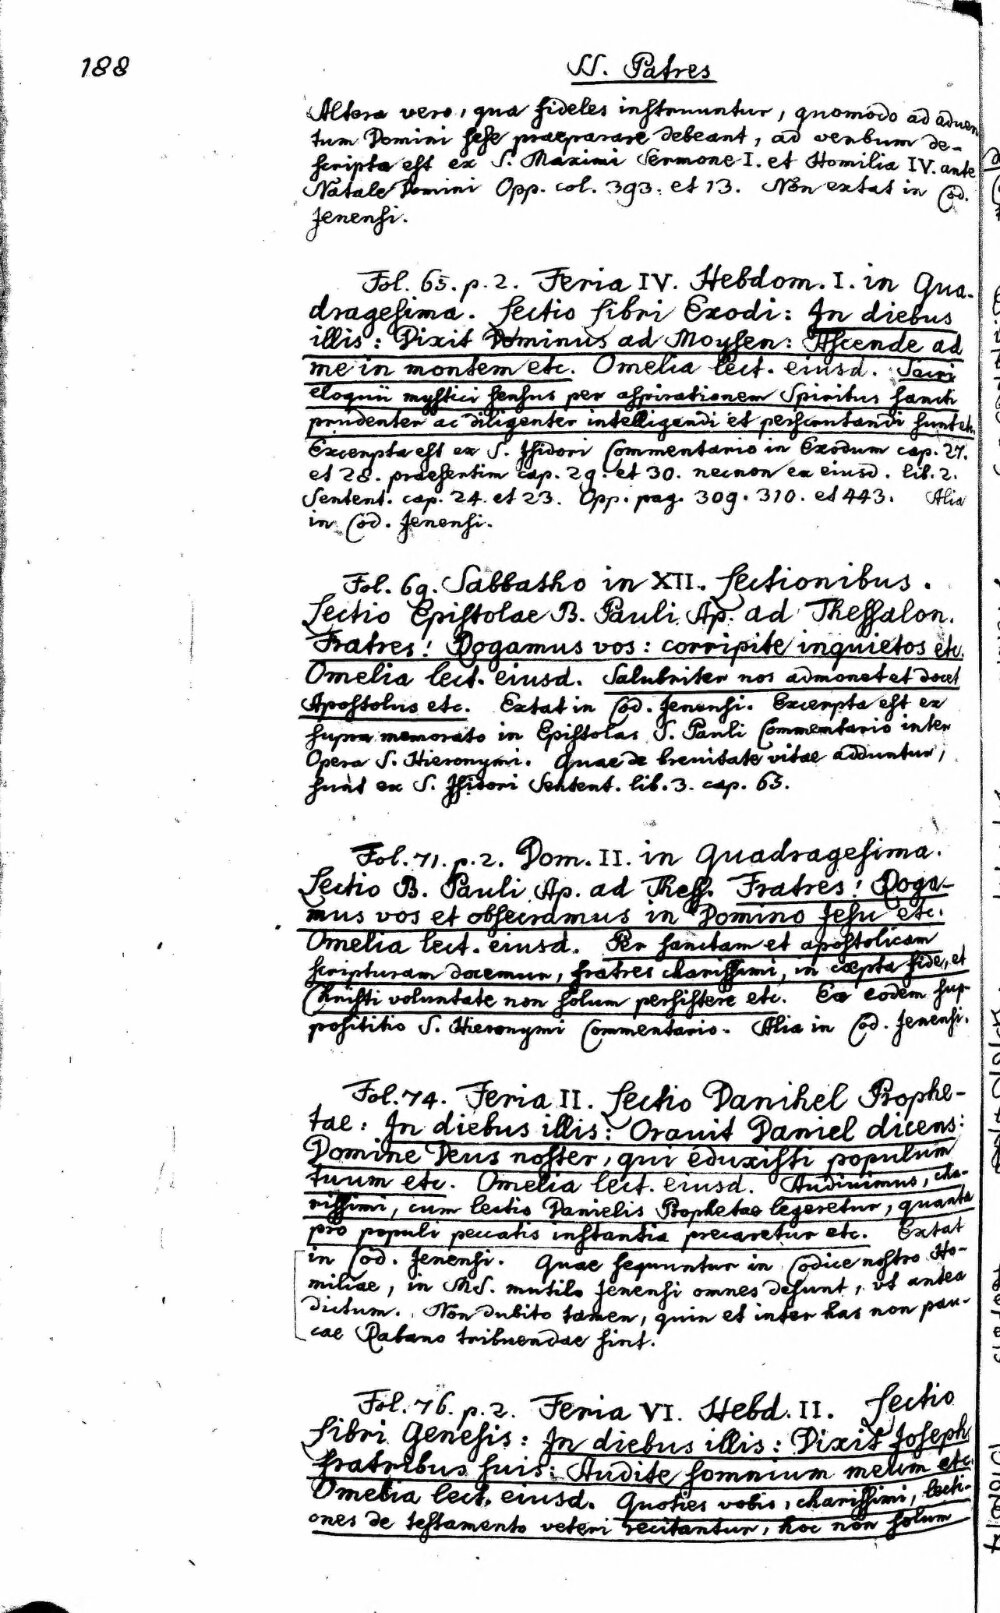 188
SS. Patres
Altera vero, qua fideles instruuntur, quomodo ad adven
tum Domini sese praeparare debeant, ad verbum de-
scripta est ex S. Maximi Sermone I. et Homilia IV. ante
Natale Domini Opp. col. 393. et 13. Non extat in Cod.
Jenensi.
Fol. 65. p. 2. Feria IV. Hebdom. I. in Qua-
dragesima. Lectio libri Exodi: In diebus
illis: Dixit Dominus ad Moysen: Ascende ad
me in montem etc. Omelia lect. eiusd. Sacri
eloquii mystici sensus per aspirationem Spiritus sancti
prudenter ac diligenter intelligendi et perscrutandi sunt etc.
Excerpta est ex S. Isidori Commentario in Exodum cap. 27.
et 28. praesertim cap. 29. et 30. necnon ex eiusd. lib. 2.
Sentent. cap. 24. et 23. Opp. pag. 309. 310. et 443. Alia
in Cod. Jenensi.
Fol. 69. Sabbatho in XII. Lectionibus.
Lectio Epistolae B. Pauli Ap. ad Thessalon.
Fratres! Rogamus vos: corripite inquietos etc.
Omelia lect. eiusd. Salubriter nos admonet et docet
Apostolus etc. Extat in Cod. Jenensi. Excerpta est ex
supra memorato in Epistolas S. Pauli Commentario inter
Opera S. Hieronymi. Quae de brevitate vitae adduntur,
sunt ex S. Isidori Sentent. lib. 3. cap. 65.
Fol. 71. p. 2. Dom. II. in Quadragesima.
Lectio B. Pauli Ap. ad Thess. Fratres! Roga-
mus vos et obsecramus in Domino Jesu etc.
Omelia lect. eiusd. Per sanctam et apostolicam
scripturam docemur, fratres charissimi, in coepta fide, et
Christi voluntate non solum persistere etc. Ex eodem sup-
posititio S. Hieronymi Commentario. Alia in Cod. Jenensi.
Fol. 74. Feria II. Lectio Danihel Prophe-
tae: In diebus illis: Oravit Daniel dicens:
Domine Deus noster, qui eduxisti populum
tuum etc. Omelia lect. eiusd. Audivimus, cha-
rissimi, cum lectio Danielis Prophetae legeretur, quanta
pro populi peccatis instantia precaretur etc. Extat
in Cod. Jenensi. Quae sequuntur in Codice nostro Ho-
miliae, in MS. mutilo Jenensi omnes desunt, ut antea
dictum. Non dubito tamen, quin et inter has non pau-
cae Rabano tribuendae sint.
Fol. 76. p. 2. Feria VI. Hebd. II. Lectio
libri Genesis: In diebus illis: Dixit Joseph
fratribus suis: Audite somnium meum etc.
Omelia lect. eiusd. Quoties vobis, charissimi, lecti-
ones de testamento veteri recitantur, hoc non solum